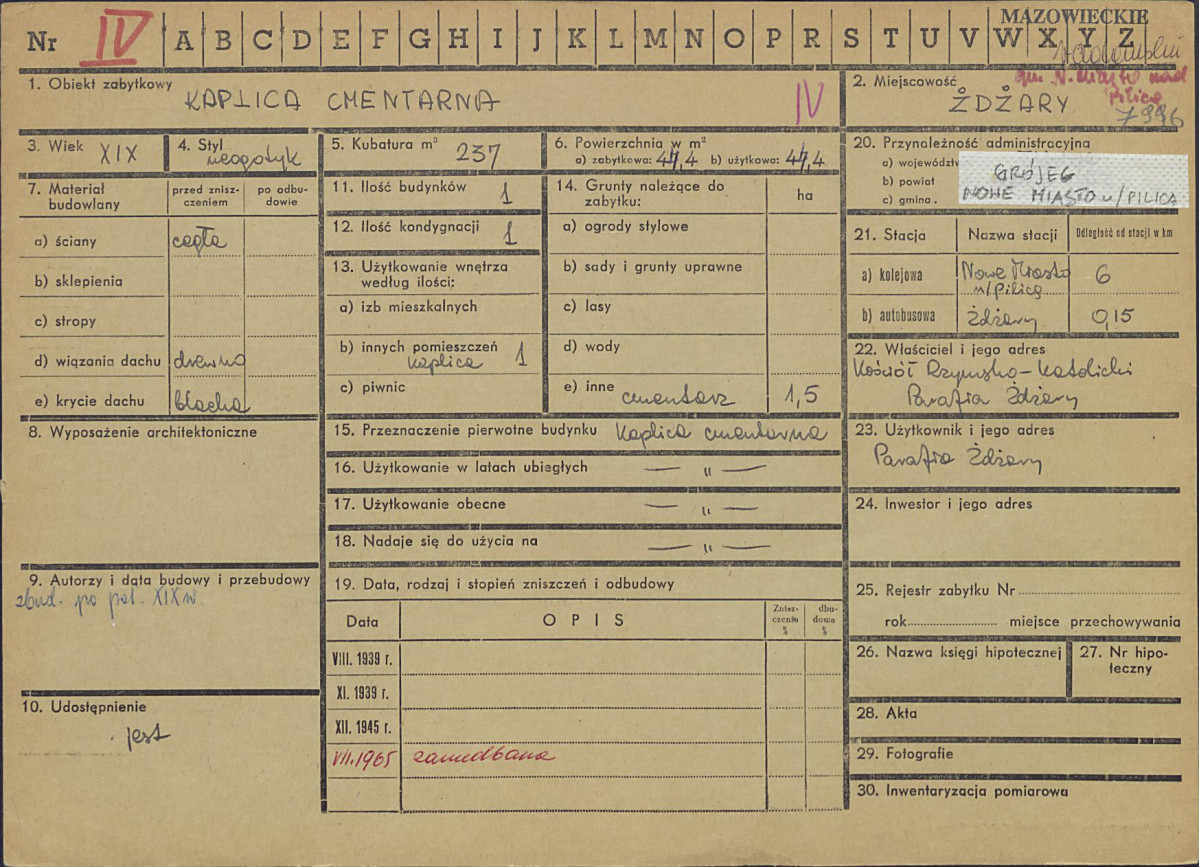 MAZOWIECKIE
Nr IV A B C D E F G H I J K L M N O P R S T U V W X Y Z
1. Obiekt zabytkowy
KAPLICA CMENTARNA
IV
2. Miejscowość
gm. N. Miasto nad
Pilicą
ŻDŻARY
7996
3. Wiek XIX
4. Styl
neogotyk
5. Kubatura m³ 237
6. Powierzchnia w m²
a) zabytkowa: 44,4 b) użytkowa: 44,4
7. Materiał budowlany
przed znisz-
czeniem
po odbu-
dowie
a) ściany cegła
b) sklepienia
c) stropy
d) wiązania dachu drewno
e) krycie dachu blacha
8. Wyposażenie architektoniczne
9. Autorzy i data budowy i przebudowy
zbud. po poł. XIX w.
10. Udostępnienie
jest
11. Ilość budynków 1
12. Ilość kondygnacji 1
13. Użytkowanie wnętrza
według ilości:
a) izb mieszkalnych
b) innych pomieszczeń
kaplica 1
c) piwnic
14. Grunty należące do
zabytku:
ha
a) ogrody stylowe
b) sady i grunty uprawne
c) lasy
d) wody
e) inne
cmentarz 1,5
15. Przeznaczenie pierwotne budynku Kaplica cmentarna
16. Użytkowanie w latach ubiegłych — „ —
17. Użytkowanie obecne — „ —
18. Nadaje się do użycia na — „ —
19. Data, rodzaj i stopień zniszczeń i odbudowy
Data
OPIS
Znisz-
czenia
%
dbu-
dowa
%
VIII. 1939 r.
XI. 1939 r.
XII. 1945 r.
VII.1965 zaniedbana
20. Przynależność administracyjna
a) województw
b) powiat
c) gmina.
GRÓJEC
NOWE MIASTO n/PILICĄ
21. Stacja
Nazwa stacji
Odległość od stacji w km
a) kolejowa Nowe Miasto
n/Pilicą 6
b) autobusowa Żdżary 0,15
22. Właściciel i jego adres
Kościół Rzymsko-Katolicki
Parafia Żdżary
23. Użytkownik i jego adres
Parafia Żdżary
24. Inwestor i jego adres
25. Rejestr zabytku Nr
rok miejsce przechowywania
26. Nazwa księgi hipotecznej
27. Nr hipo-
teczny
28. Akta
29. Fotografie
30. Inwentaryzacja pomiarowa